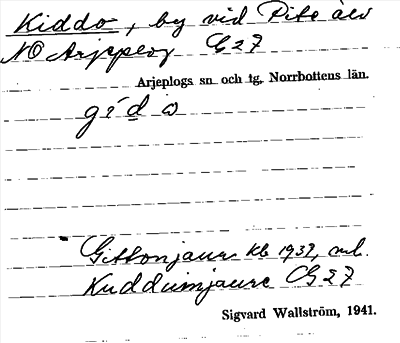 Kiddo, by vid Pite älv
NO Arjeplog G27
Arjeplogs sn och tg, Norrbottens län.
Gittonjaure kb 1939, enl.
Kuddumjaure G27
Sigvard Wallström, 1941.